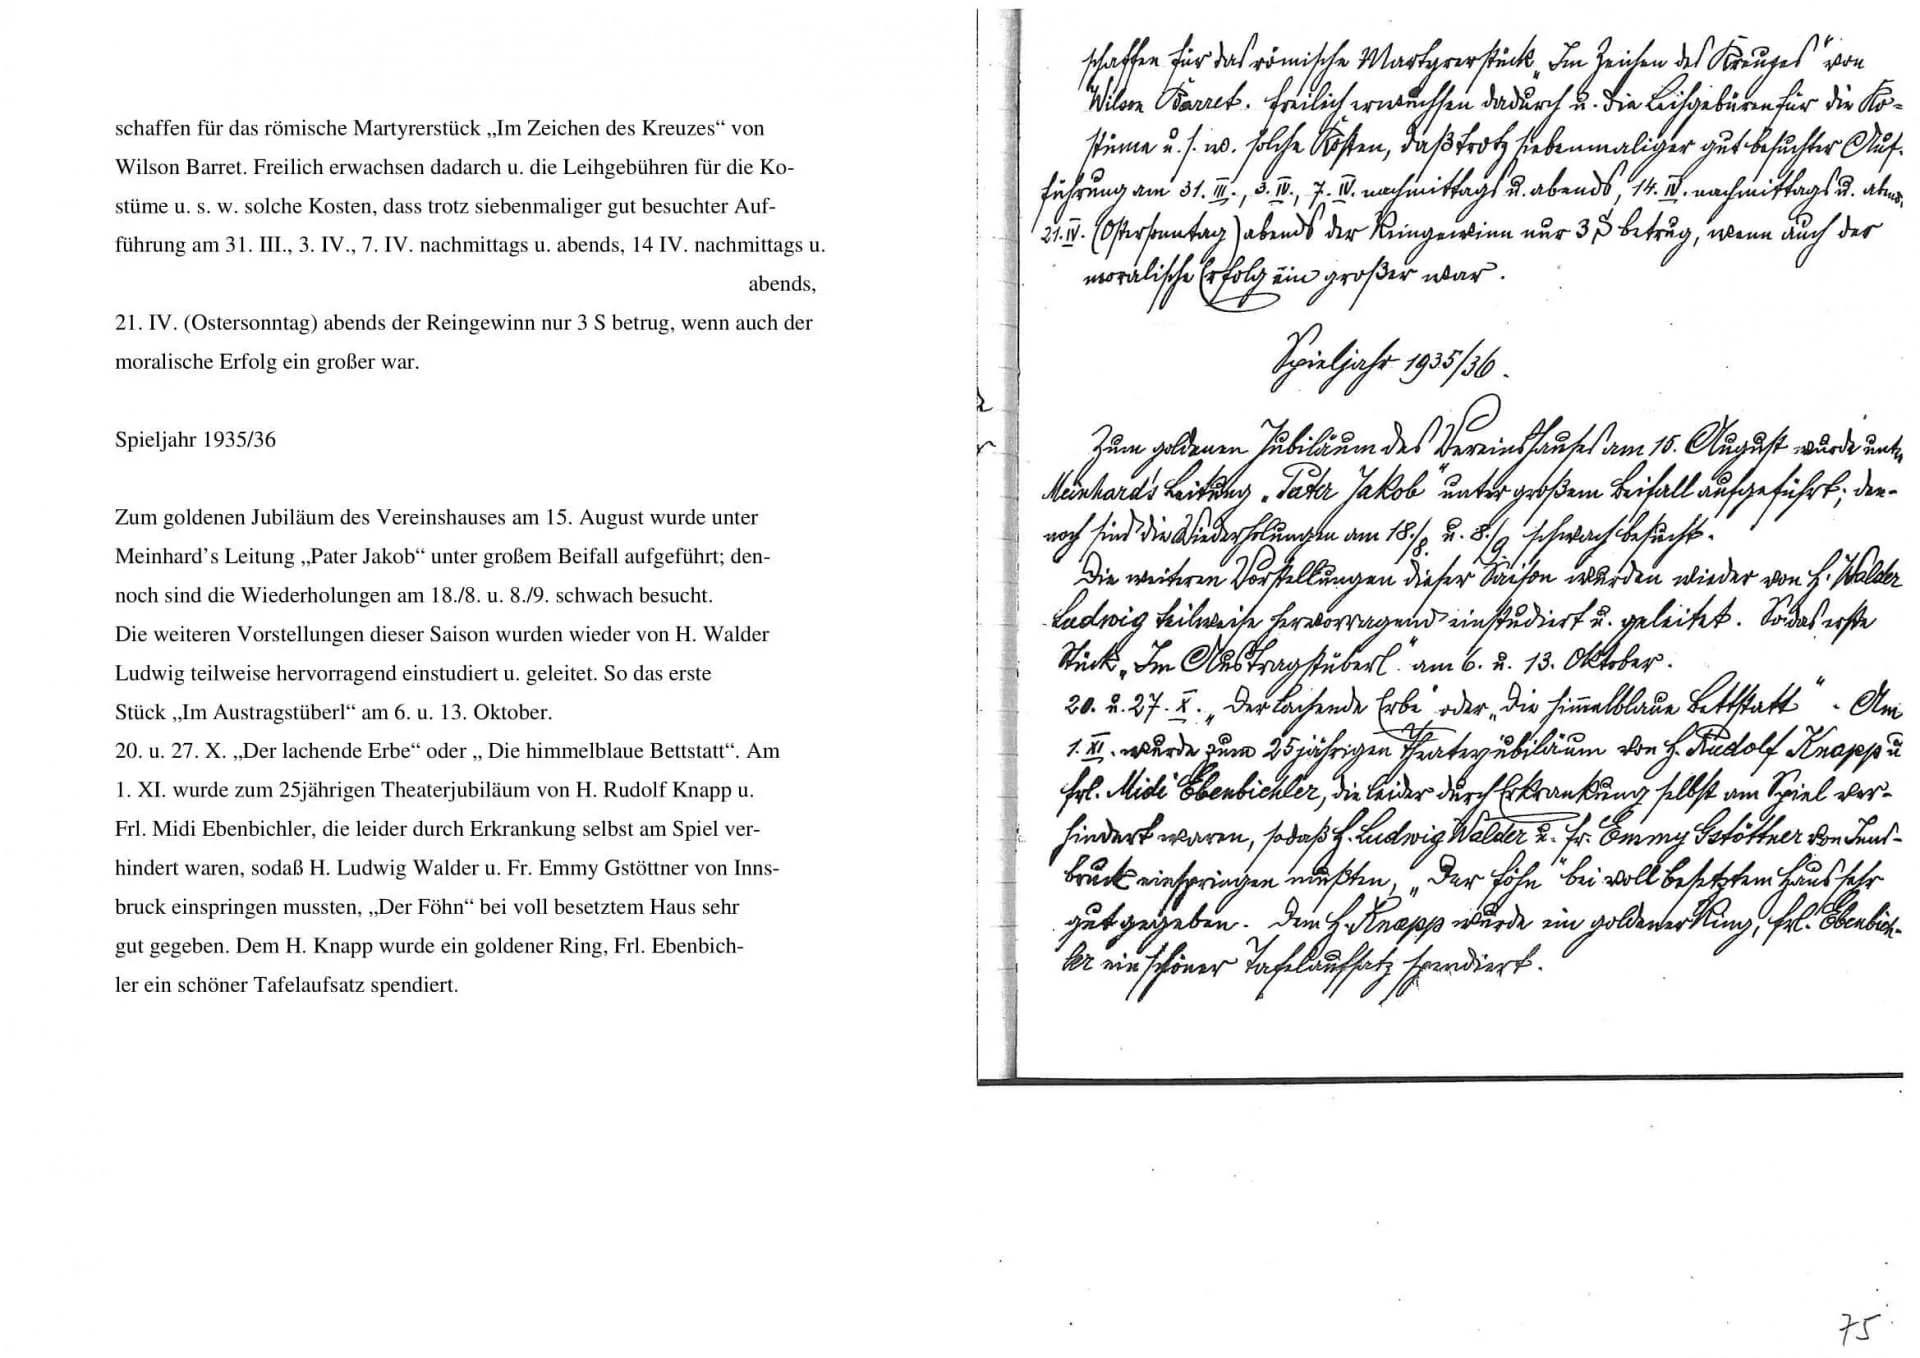 schaffen für das römische Martyrerstück „Im Zeichen des Kreuzes“ von
Wilson Barret. Freilich erwachsen dadarch u. die Leihgebühren für die Ko-
stüme u. s. w. solche Kosten, dass trotz siebenmaliger gut besuchter Auf-
führung am 31. III., 3. IV., 7. IV. nachmittags u. abends, 14 IV. nachmittags u.
abends,
21. IV. (Ostersonntag) abends der Reingewinn nur 3 S betrug, wenn auch der
moralische Erfolg ein großer war.
Spieljahr 1935/36
Zum goldenen Jubiläum des Vereinshauses am 15. August wurde unter
Meinhard’s Leitung „Pater Jakob“ unter großem Beifall aufgeführt; den-
noch sind die Wiederholungen am 18./8. u. 8./9. schwach besucht.
Die weiteren Vorstellungen dieser Saison wurden wieder von H. Walder
Ludwig teilweise hervorragend einstudiert u. geleitet. So das erste
Stück „Im Austragstüberl“ am 6. u. 13. Oktober.
20. u. 27. X. „Der lachende Erbe“ oder „ Die himmelblaue Bettstatt“. Am
1. XI. wurde zum 25jährigen Theaterjubiläum von H. Rudolf Knapp u.
Frl. Midi Ebenbichler, die leider durch Erkrankung selbst am Spiel ver-
hindert waren, sodaß H. Ludwig Walder u. Fr. Emmy Gstöttner von Inns-
bruck einspringen mussten, „Der Föhn“ bei voll besetztem Haus sehr
gut gegeben. Dem H. Knapp wurde ein goldener Ring, Frl. Ebenbich-
ler ein schöner Tafelaufsatz spendiert.
schaffen für das römische Martyrerstück „Im Zeichen des Kreuzes“ von
Wilson Barret. Freilich erwuchsen dadurch u. die Leihgebüren für die Ko-
stüme u. s. w. solche Kosten, daß trotz siebenmaliger gut besuchter Auf-
führung am 31. III., 3. IV., 7. IV. nachmittags u. abends, 14. IV. nachmittags u. abends,
21. IV. (Ostersonntag) abends der Reingewinn nur 3 S betrug, wenn auch der
moralische Erfolg ein großer war.
Spieljahr 1935/36.
Zum goldenen Jubiläum des Vereinshauses am 15. August wurde unter
Meinhard's Leitung „Pater Jakob“ unter großem Beifall aufgeführt; den-
noch sind die Wiederholungen am 18./8. u. 8./9. schwach besucht.
Die weiteren Vorstellungen dieser Saison wurden wieder von H. Walder
Ludwig teilweise hervorragend einstudiert u. geleitet. So das erste
Stück „Im Austragstüberl“ am 6. u. 13. Oktober.
20. u. 27. X. „Der lachende Erbe“ oder „Die himmelblaue Bettstatt“. Am
1. XI. wurde zum 25jährigen Theaterjubiläum von H. Rudolf Knapp u
Frl. Midi Ebenbichler, die leider durch Erkrankung selbst am Spiel ver-
hindert waren, sodaß H. Ludwig Walder u. Fr. Emmy Gstöttner von Inns-
bruck einspringen mußten, „Der Föhn“ bei voll besetztem Haus sehr
gut gegeben. Dem H. Knapp wurde ein goldener Ring, Frl. Ebenbich-
ler ein schöner Tafelaufsatz spendiert.
75